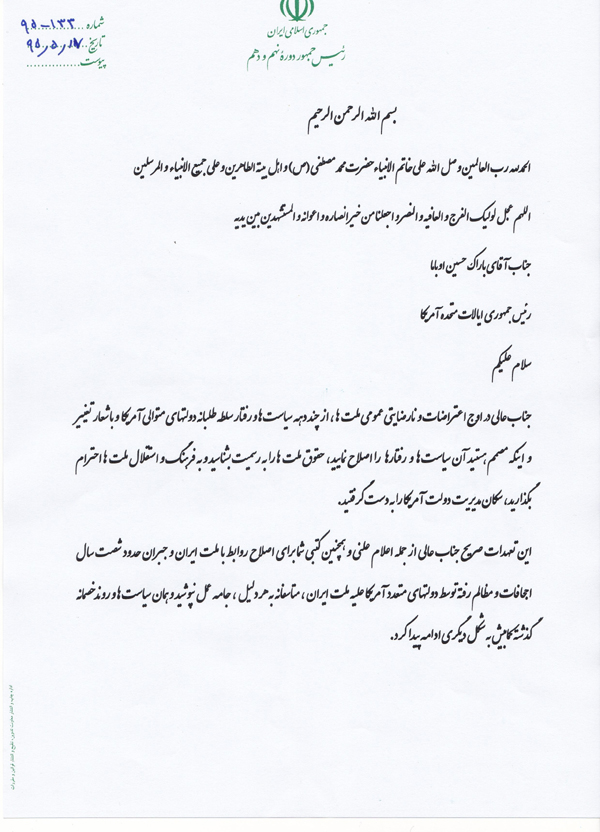 شماره ۱۳۳-۹۵
تاریخ ۹۵,۵,۱۷
پیوست
جمهوری اسلامی ایران
رئیس جمهور دورهٔ نهم و دهم
بسم الله الرحمن الرحیم
الحمدلله رب العالمین و صل الله علی خاتم الانبیاء حضرت محمد مصطفی (ص) و اهل بیته الطاهرین و علی جمیع الانبیاء و المرسلین
اللهم عجل لولیک الفرج و العافیه و النصر و اجعلنا من خیر انصاره و اعوانه و المستشهدین بین یدیه
جناب آقای باراک حسین اوباما
رئیس جمهوری ایالات متحده آمریکا
سلام علیکم
جناب عالی در اوج اعتراضات و نارضایتی عمومی ملت ها، از چند دهه سیاست ها و رفتار سلطه طلبانه دولتهای متوالی آمریکا و با شعار تغییر
و اینکه مصمم هستید آن سیاست ها و رفتارها را اصلاح نمایید، حقوق ملت ها را به رسمیت بشناسید و به فرهنگ و استقلال ملت ها احترام
بگذارید، سکان مدیریت دولت آمریکا را به دست گرفتید.
این تعهدات صریح جناب عالی از جمله اعلام علنی و همچنین کتبی شما برای اصلاح روابط با ملت ایران و جبران حدود شصت سال
اجحافات و مظالم رفته توسط دولتهای متعدد آمریکا علیه ملت ایران، متاسفانه به هر دلیل، جامه عمل نپوشید و همان سیاست ها و روند خصمانه
گذشته کمابیش به شکل دیگری ادامه پیدا کرد.